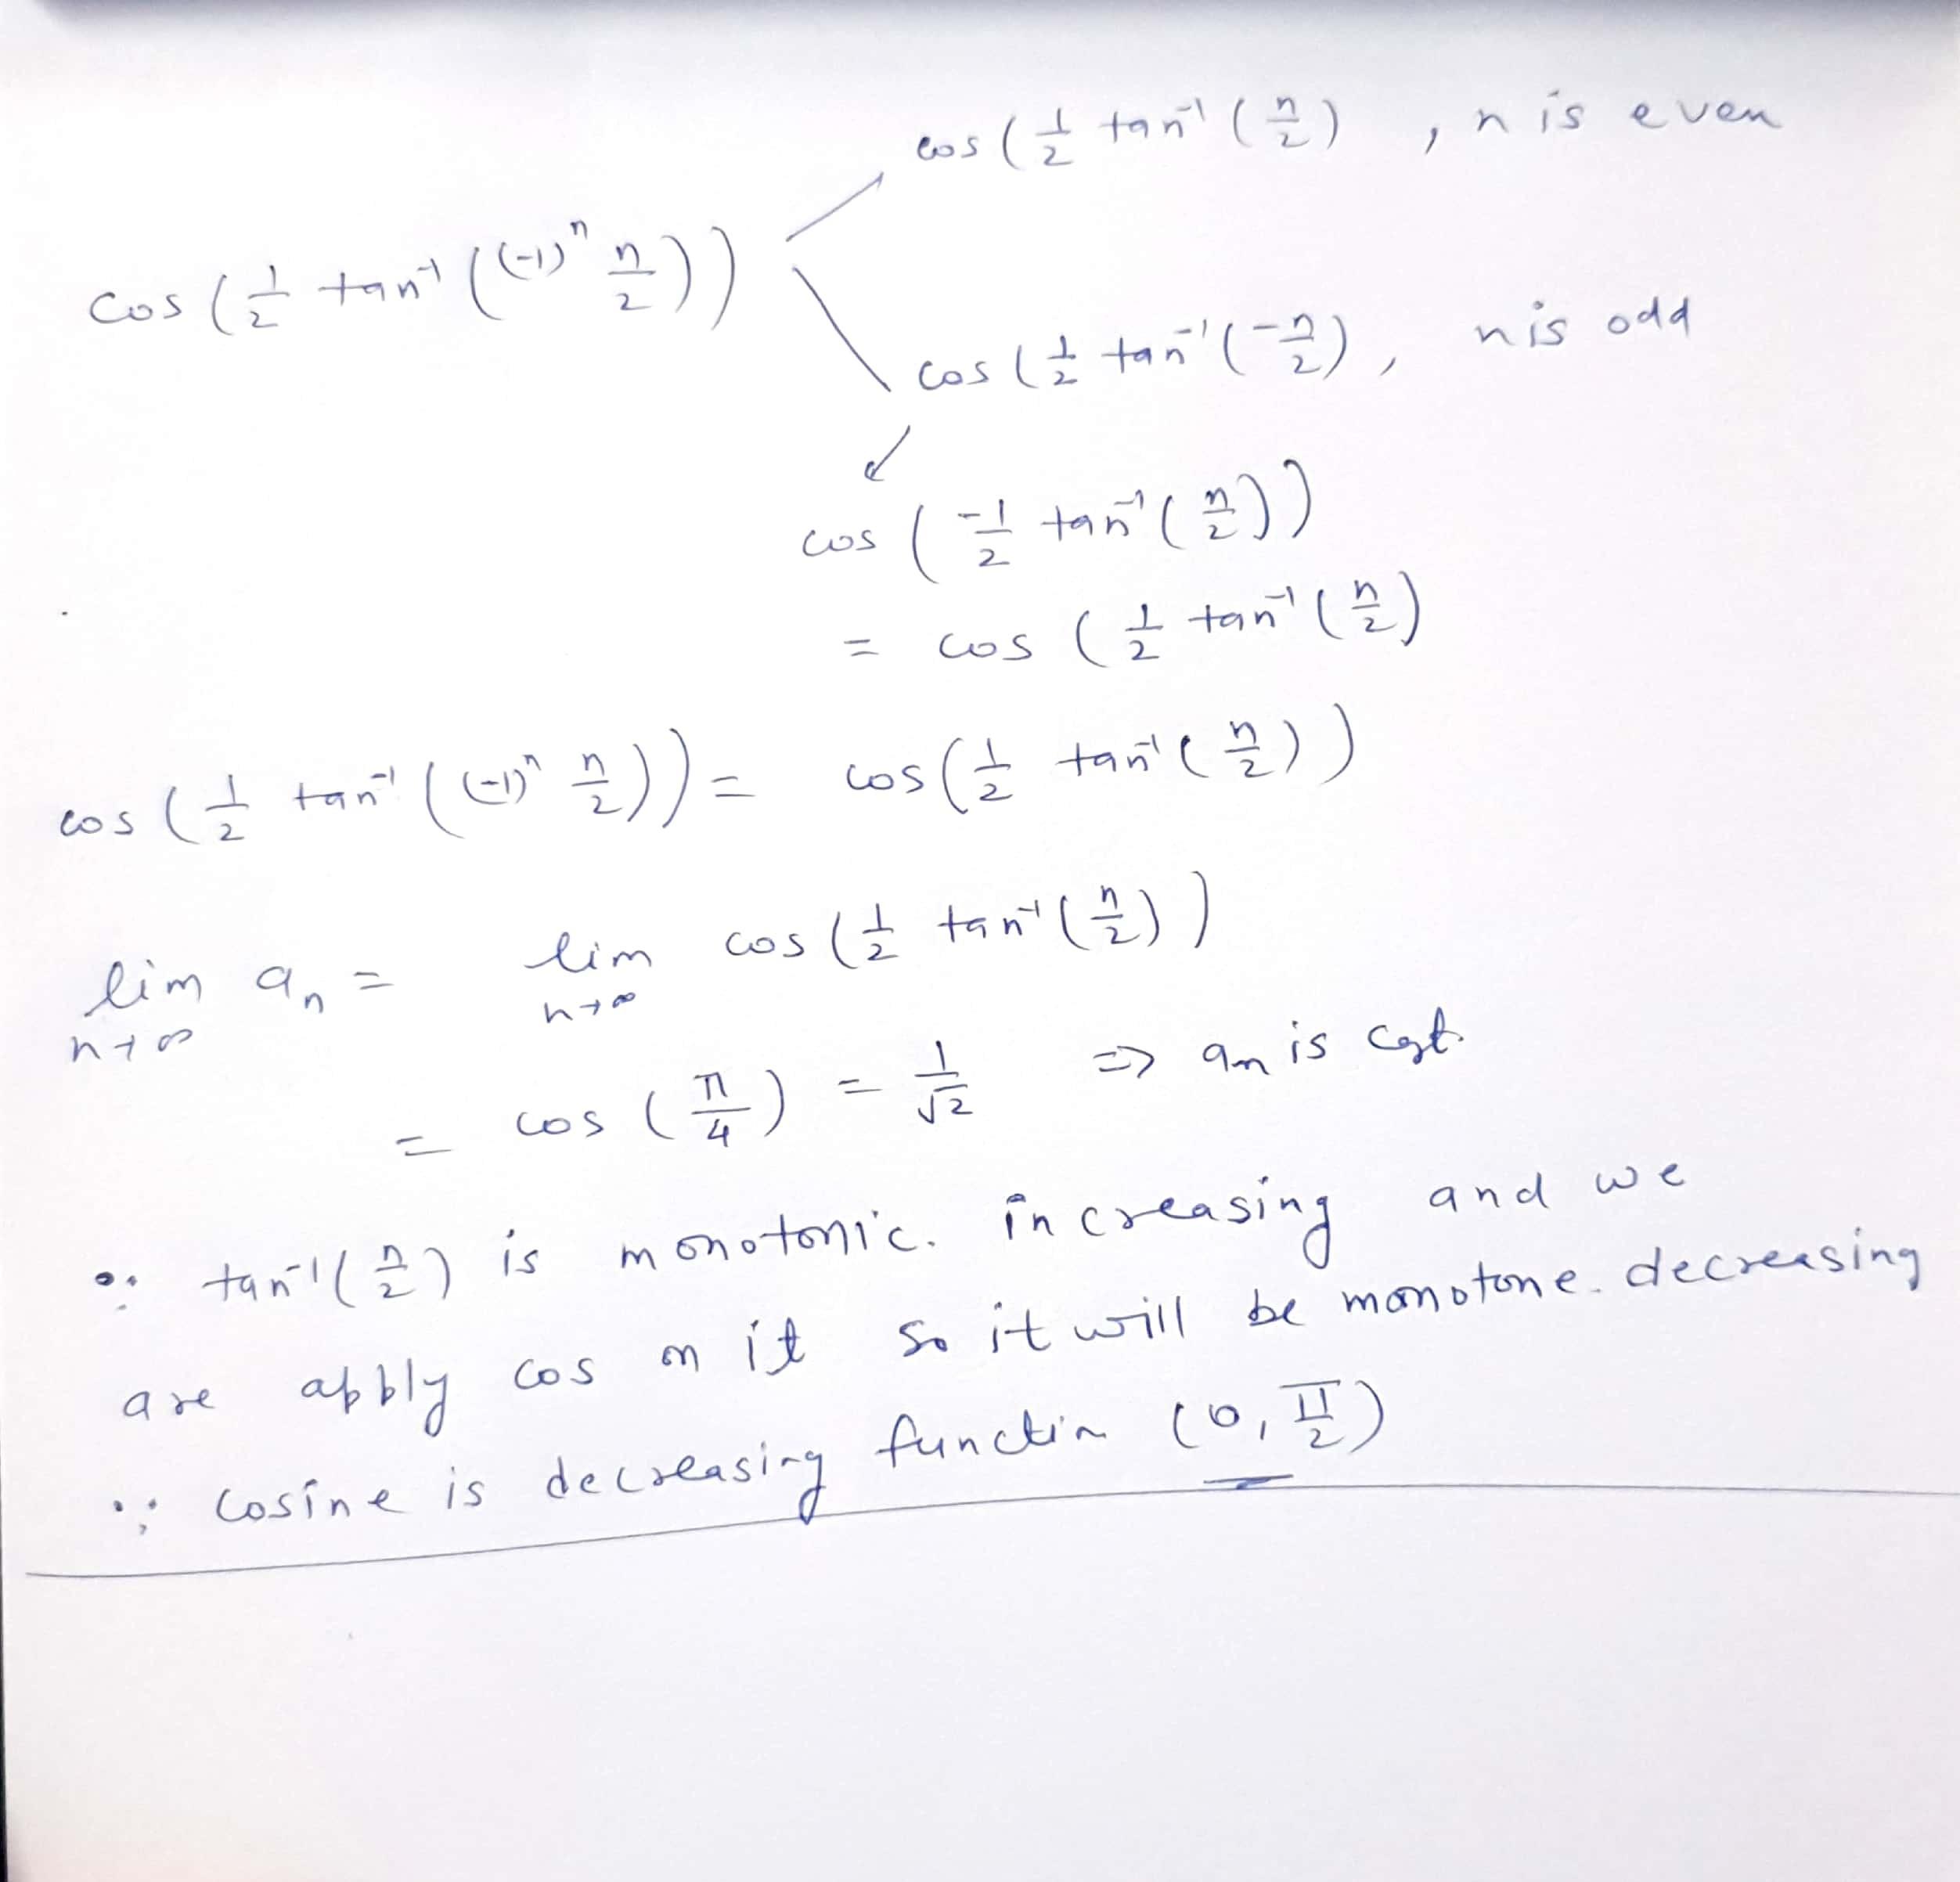 cos (1/2 tan⁻¹ (n/2) , n is even
cos (1/2 tan⁻¹ ((-1)ⁿ n/2))
cos (1/2 tan⁻¹ (-n/2) , n is odd
cos (-1/2 tan⁻¹ (n/2))
= cos (1/2 tan⁻¹ (n/2)
cos (1/2 tan⁻¹ ((-1)ⁿ n/2)) = cos (1/2 tan⁻¹ (n/2))
lim n→∞ aₙ = lim n→∞ cos (1/2 tan⁻¹ (n/2))
= cos (π/4) = 1/√2 => aₙ is cgt.
∵ tan⁻¹ (n/2) is monotonic. increasing and we
are apply cos on it so it will be monotone. decreasing
∵ cosine is decreasing functin (0, π/2)